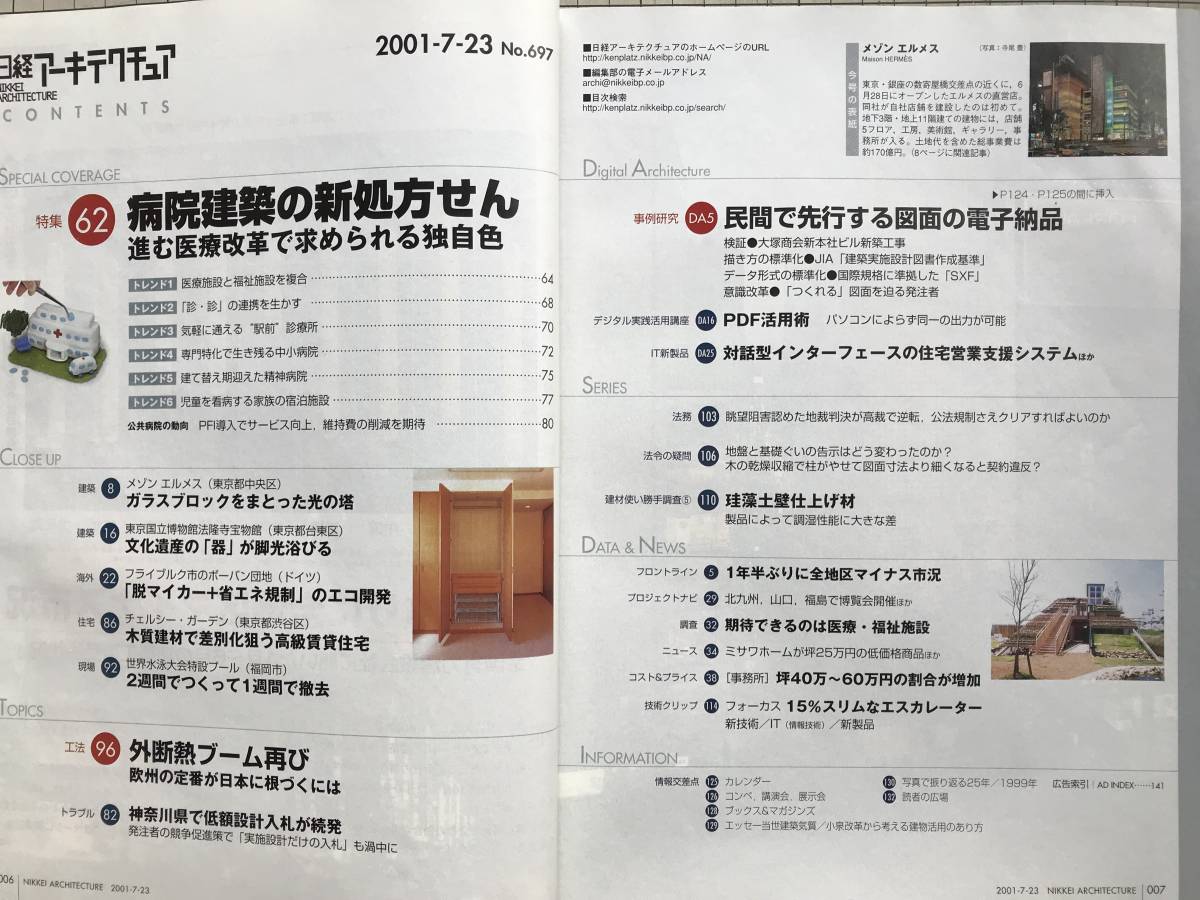 日経アーキテクチュア
NIKKEI
ARCHITECTURE
CONTENTS
2001-7-23 No.697
SPECIAL COVERAGE
特集 62 病院建築の新処方せん
進む医療改革で求められる独自色
トレンド1 医療施設と福祉施設を複合 64
トレンド2 「診・診」の連携を生かす 68
トレンド3 気軽に通える“駅前”診療所 70
トレンド4 専門特化で生き残る中小病院 72
トレンド5 建て替え期迎えた精神病院 75
トレンド6 児童を看病する家族の宿泊施設 77
公共病院の動向 PFI導入でサービス向上，維持費の削減を期待 80
CLOSE UP
建築 8 メゾン エルメス（東京都中央区）
ガラスブロックをまとった光の塔
建築 16 東京国立博物館法隆寺宝物館（東京都台東区）
文化遺産の「器」が脚光浴びる
海外 22 フライブルク市のボーバン団地（ドイツ）
「脱マイカー+省エネ規制」のエコ開発
住宅 86 チェルシー・ガーデン（東京都渋谷区）
木質建材で差別化狙う高級賃貸住宅
現場 92 世界水泳大会特設プール（福岡市）
2週間でつくって1週間で撤去
TOPICS
工法 96 外断熱ブーム再び
欧州の定番が日本に根づくには
トラブル 82 神奈川県で低額設計入札が続発
発注者の競争促進策で「実施設計だけの入札」も渦中に
006 NIKKEI ARCHITECTURE 2001-7-23
■日経アーキテクチュアのホームページのURL
http://kenplatz.nikkeibp.co.jp/NA/
■編集部の電子メールアドレス
archi@nikkeibp.co.jp
■目次検索
http://kenplatz.nikkeibp.co.jp/search/
今号の表紙
メゾン エルメス （写真：寺尾 豊）
Maison HERMÈS
東京・銀座の数寄屋橋交差点の近くに，6
月28日にオープンしたエルメスの直営店。
同社が自社店舗を建設したのは初めて。
地下3階・地上11階建ての建物には，店舗
5フロア，工房，美術館，ギャラリー，事
務所が入る。土地代を含めた総事業費は
約170億円。（8ページに関連記事）
Digital Architecture
▶P124・P125の間に挿入
事例研究 DA5 民間で先行する図面の電子納品
検証●大塚商会新本社ビル新築工事
描き方の標準化●JIA「建築実施設計図書作成基準」
データ形式の標準化●国際規格に準拠した「SXF」
意識改革●「つくれる」図面を迫る発注者
デジタル実践活用講座 DA16 PDF活用術 パソコンによらず同一の出力が可能
IT新製品 DA25 対話型インターフェースの住宅営業支援システムほか
SERIES
法務 103 眺望阻害認めた地裁判決が高裁で逆転，公法規制さえクリアすればよいのか
法令の疑問 106 地盤と基礎ぐいの告示はどう変わったのか？
木の乾燥収縮で柱がやせて図面寸法より細くなると契約違反？
建材使い勝手調査⑤ 110 珪藻土壁仕上げ材
製品によって調湿性能に大きな差
DATA & NEWS
フロントライン 5 1年半ぶりに全地区マイナス市況
プロジェクトナビ 29 北九州，山口，福島で博覧会開催ほか
調査 32 期待できるのは医療・福祉施設
ニュース 34 ミサワホームが坪25万円の低価格商品ほか
コスト&プライス 38 ［事務所］坪40万～60万円の割合が増加
技術クリップ 114 フォーカス 15%スリムなエスカレーター
新技術／IT（情報技術）／新製品
INFORMATION
情報交差点 125 カレンダー
126 コンペ，講演会，展示会
128 ブックス&マガジンズ
129 エッセー当世建築気質／小泉改革から考える建物活用のあり方
130 写真で振り返る25年／1999年
132 読者の広場
広告索引 AD INDEX……141
2001-7-23 NIKKEI ARCHITECTURE 007